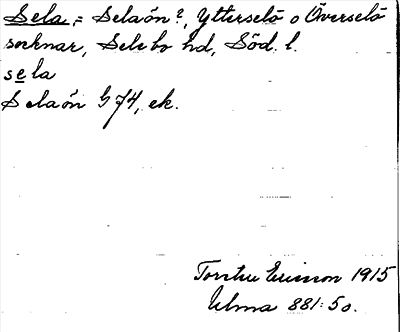 Sela, = Selaön?, Ytterselö o Överselö
socknar, Selebo hd, Söd. l.
sela
Selaön G 74, ek.
Torsten Ericsson 1915
Ulma 881:50.